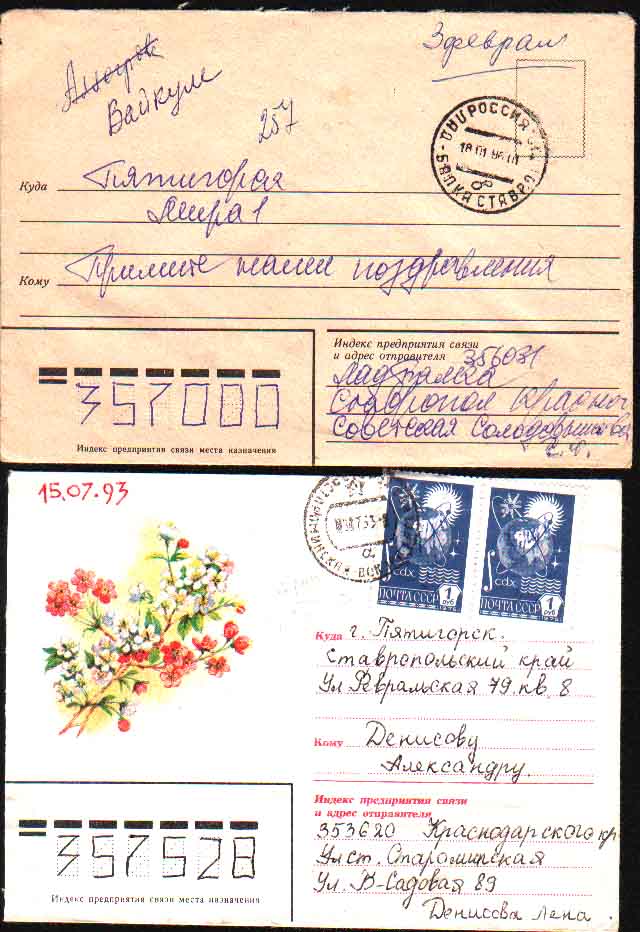 3 феврал
Вайкуле
257
РОССИЯ
18.01.96 10
Куда Пятигорск
Мира 1
Кому Примите наши поздравления
Индекс предприятия связи
и адрес отправителя 356031
Ставрополь Красноч
Советская
357000
Индекс предприятия связи места назначения
15.07.93
cdx
ПОЧТА СССР 1 руб
1976
cdx
ПОЧТА СССР 1 руб
1976
Куда г. Пятигорск.
Ставропольский край
Ул Февральская 79. кв. 8
Кому Денисову
Александру.
Индекс предприятия связи
и адрес отправителя
353620 Краснодарского кр
Ул ст. Староминская
Ул. В-Садовая 89
Денисова Лена.
357528
Индекс предприятия связи места назначения